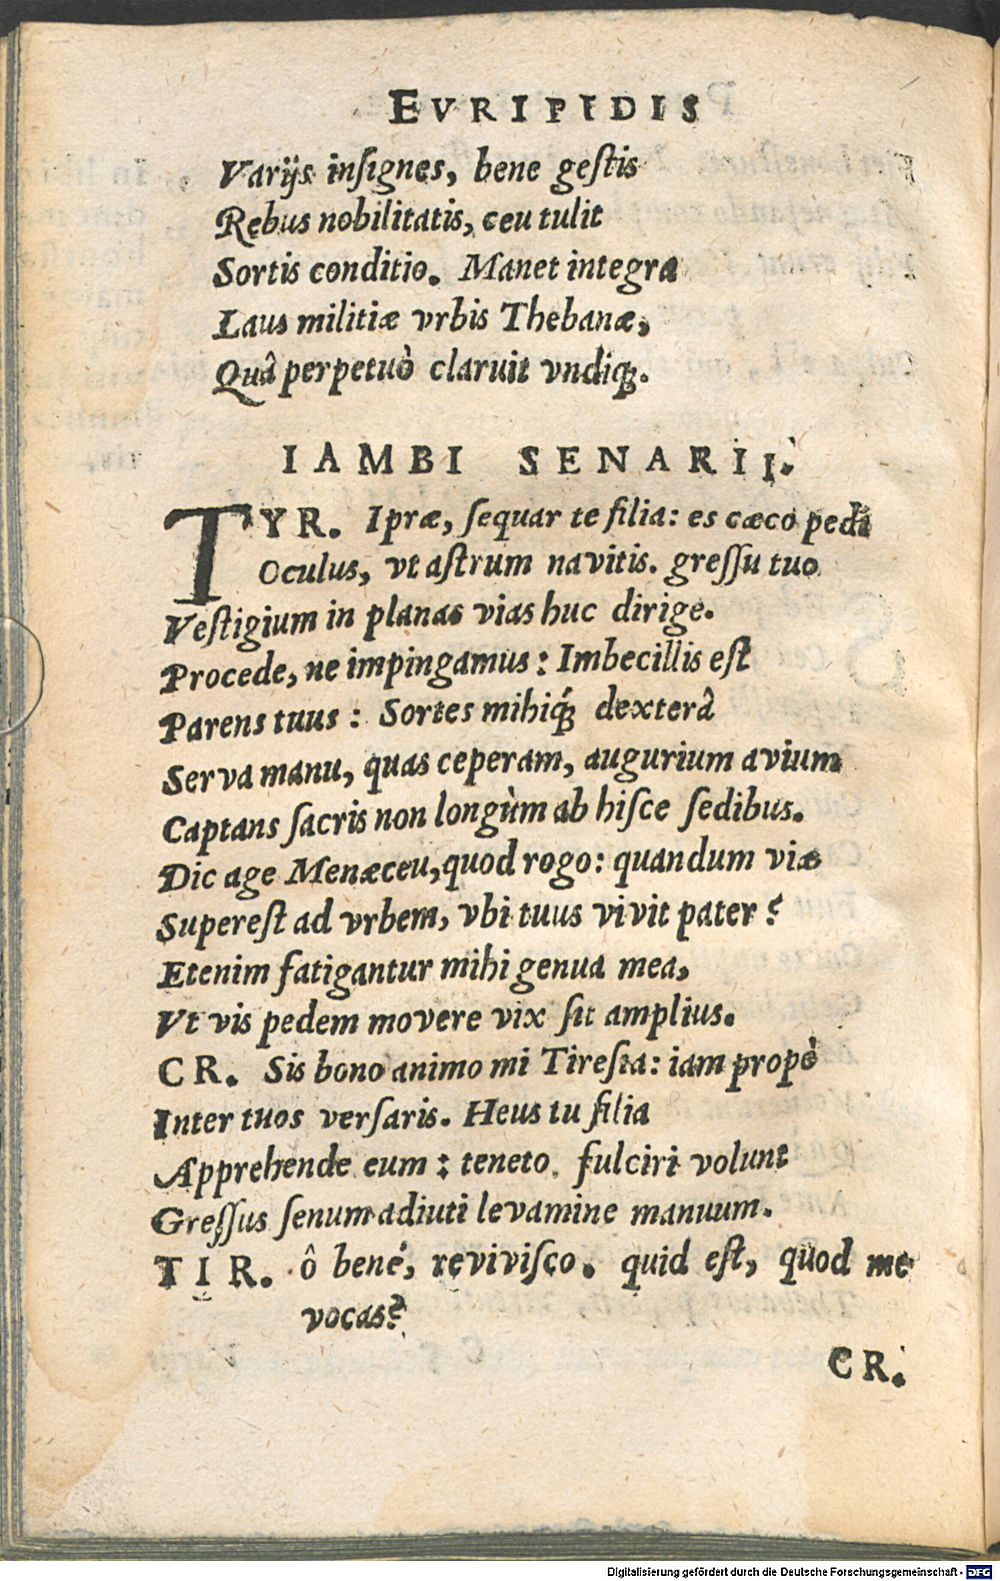 EVRIPIDIS
Varijs inſignes, bene geſtis
Rebus nobilitatis, ceu tulit
Sortis conditio. Manet integra
Laus militiæ vrbis Thebanæ,
Quâ perpetuò claruit vndiq́;.
IAMBI SENARII.
TYR. I præ, ſequar te filia: es cæco pedi
Oculus, vt aſtrum navitis. greſſu tuo
Veſtigium in planas vias huc dirige.
Procede, ne impingamus: Imbecillis eſt
Parens tuus: Sortes mihiq́; dexterâ
Serva manu, quas ceperam, augurium avium
Captans ſacris non longùm ab hiſce ſedibus.
Dic age Menæceu, quod rogo: quandum viæ
Supereſt ad vrbem, vbi tuus vivit pater?
Etenim fatigantur mihi genua mea,
Vt vis pedem movere vix ſit amplius.
CR. Sis bono animo mi Tireſia: iam propè
Inter tuos verſaris. Heus tu filia
Apprehende eum: teneto. fulciri volunt
Greſſus ſenum adiuti levamine manuum.
TIR. ô bené, reviviſco. quid eſt, quod me
vocas?
CR.
Digitalisierung gefördert durch die Deutsche Forschungsgemeinschaft - DFG